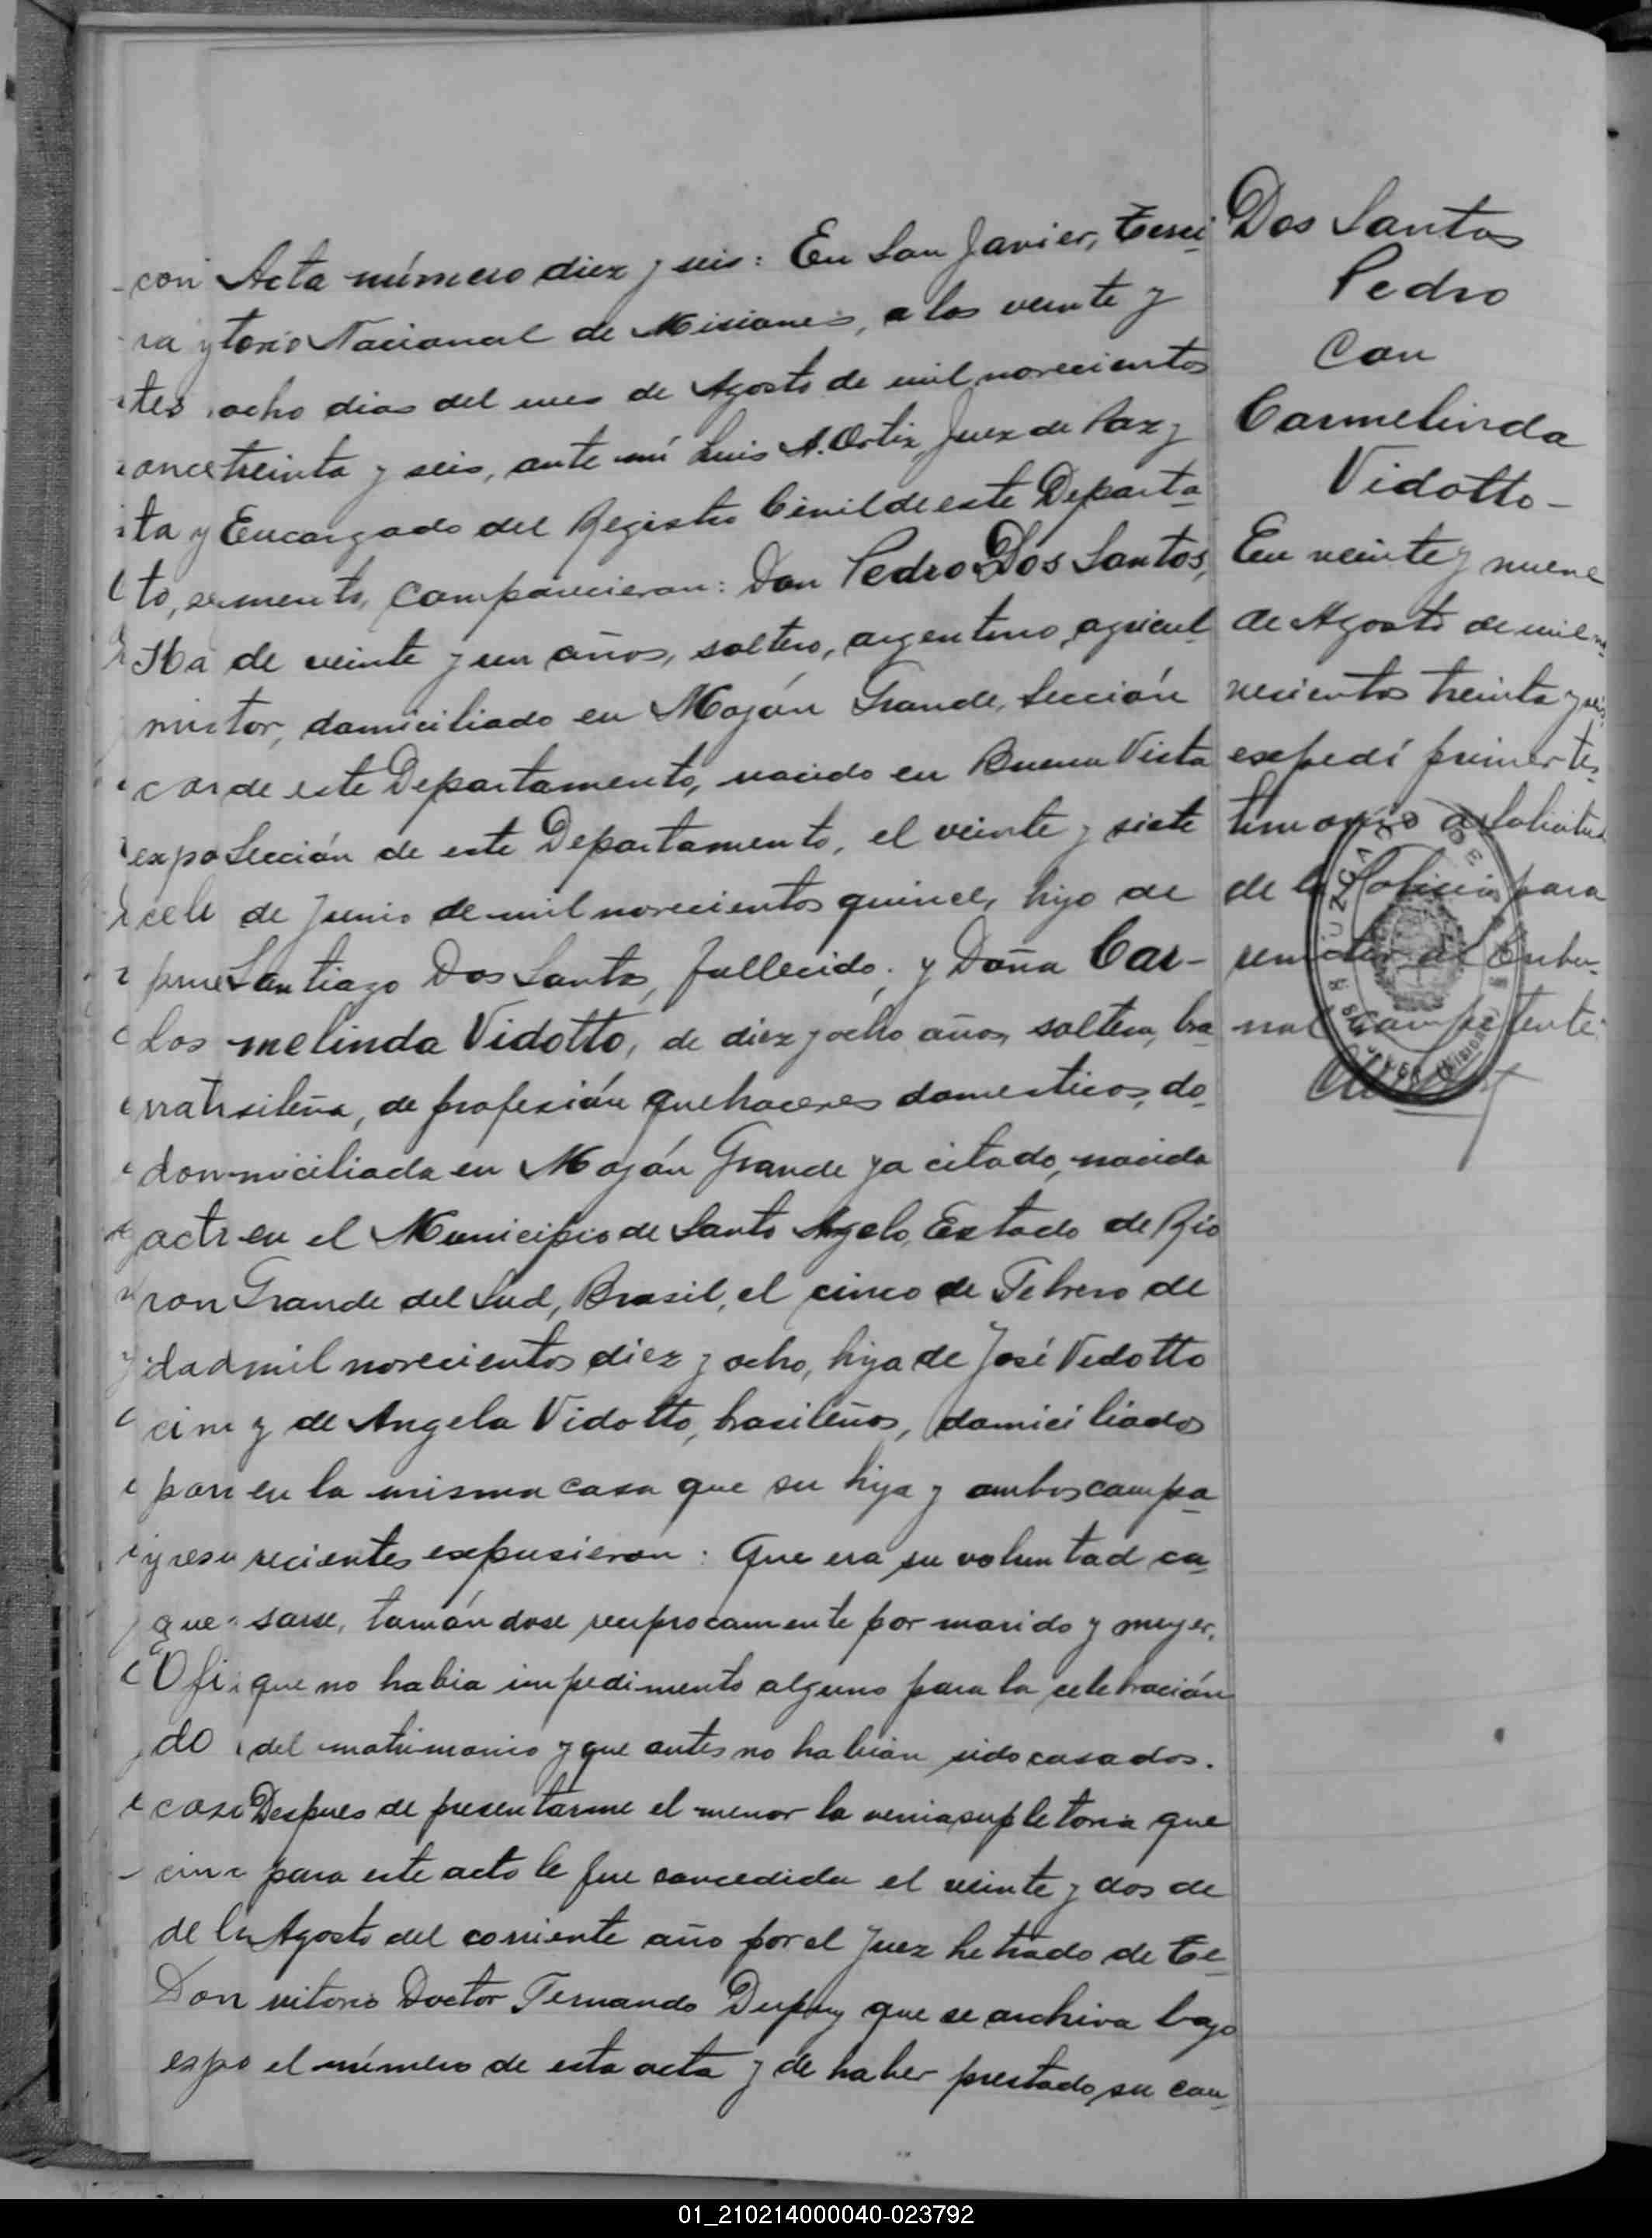 Acta número diez y seis: En San Javier, Terri-
torio Nacional de Misiones, a los veinte y
ocho dias del mes de Agosto de mil novecientos
treinta y seis, ante mí Luis A. Ortiz, Juez de Paz y
Encargado del Registro Civil de este Departa-
mento, comparecieron: Don Pedro Dos Santos,
de veinte y un años, soltero, argentino, agricul-
tor, domiciliado en Mojón Grande, Sección
de este Departamento, nacido en Buena Vista
Sección de este Departamento, el veinte y siete
de Junio de mil novecientos quince, hijo de
Santiago Dos Santos, fallecido; y Doña Car-
melinda Vidotto, de diez y ocho años, soltera, bra-
sileña, de profesión quehaceres domesticos, do-
miciliada en Mojón Grande ya citado, nacida
en el Municipio de Santo Agelo, Estado de Rio
Grande del Sud, Brasil, el cinco de Febrero de
mil novecientos diez y ocho, hija de José Vedotto
y de Angela Vidotto, brasileños, domiciliados
en la misma casa que su hija y ambos compa-
recientes expusieron: Que era su voluntad ca-
sarse, tomándose reciprocamente por marido y mujer,
que no habia impedimento alguno para la celebración
del matrimonio y que antes no habian sido casados.
Despues de presentarme el menor la venia supletoria que
para este acto le fue concedida el veinte y dos de
Agosto del corriente año por el Juez Letrado de Te-
rritorio Doctor Fernando Dupuy que se archiva bajo
el número de esta acta y de haber prestado su con-
Dos Santos
Pedro
Con
Carmelinda
Vidotto-
En veinte y nueve
de Agosto de mil no-
vecientos treinta y seis,
expedí primer tes-
timonio a solicitud
de la Policia para
remitir al Tribu-
nal Competente.
JUZGADO DE
SAN JAVIER MISIONES
01_210214000040-023792